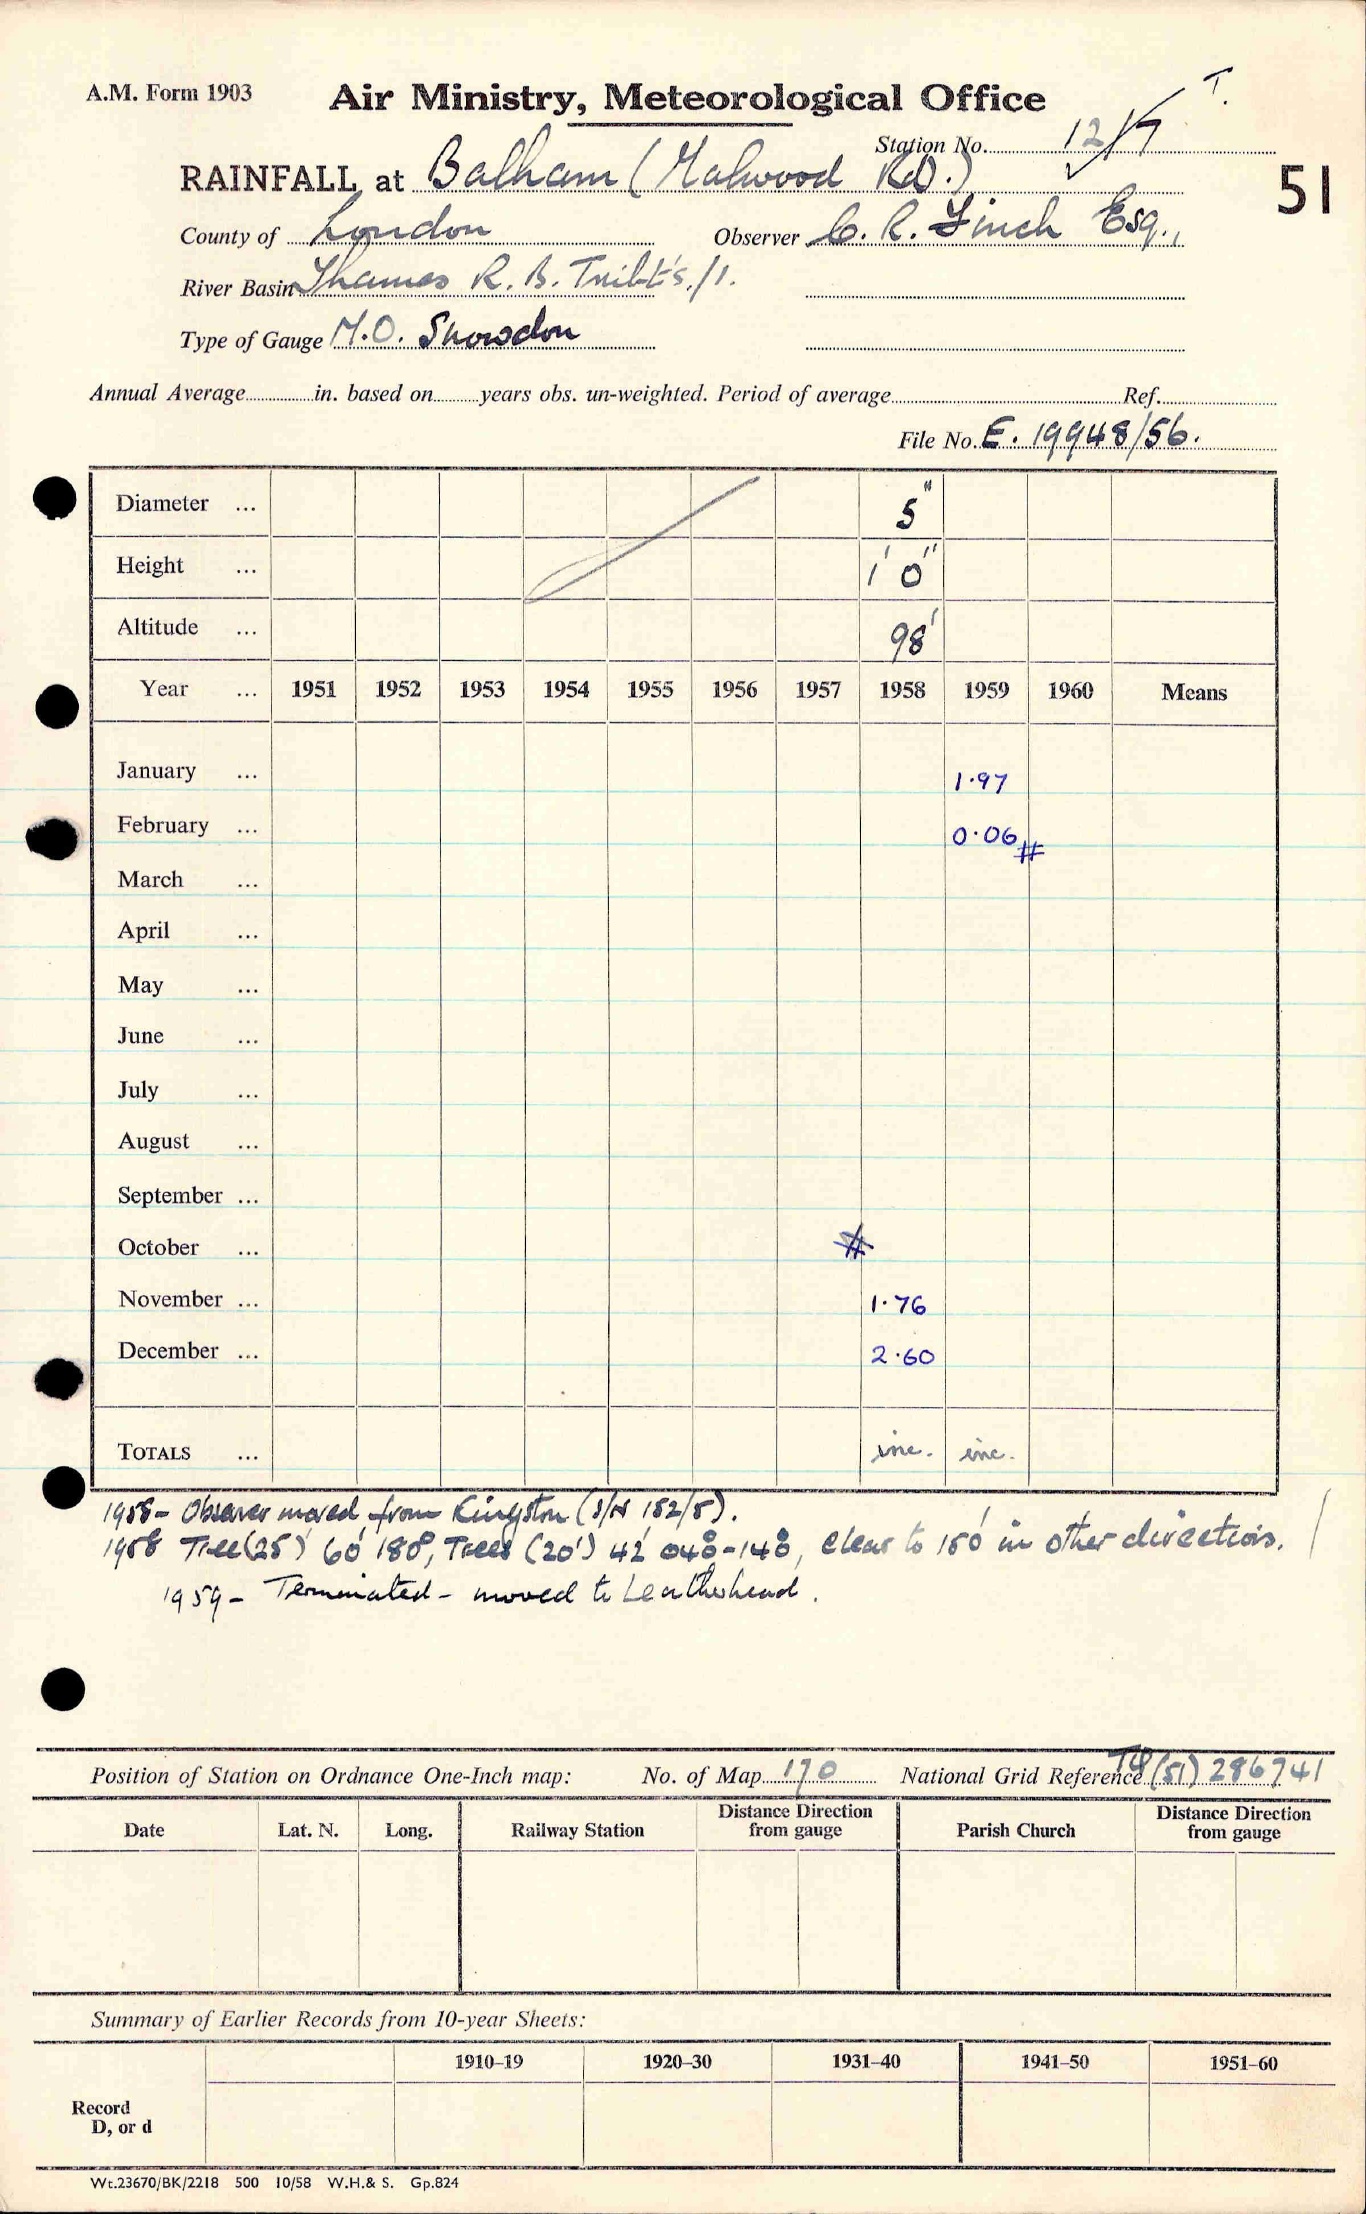 A.M. Form 1903
Air Ministry, Meteorological Office
T.
Station No. 12/7
RAINFALL at Balham (Malwood Rd.)
51
County of London Observer C. R. Finch Esq.,
River Basin Thames R. B. Tribt's./1.
Type of Gauge M.O. Snowdon
Annual Average in. based on years obs. un-weighted. Period of average Ref.
File No. E. 19948/56.
Diameter ... 5"
Height ... 1' 0"
Altitude ... 98'
Year ... 1951 1952 1953 1954 1955 1956 1957 1958 1959 1960 Means
January ... 1.97
February ... 0.06 #
March ...
April ...
May ...
June ...
July ...
August ...
September ...
October ... #
November ... 1.76
December ... 2.60
TOTALS ... inc. inc.
1958 - Observer moved from Kingston (S/N 152/5).
1958 Tree (25') 60' 180°, Trees (20') 42' 040°-140°, clear to 150' in other directions.
1959 - Terminated - moved to Leatherhead.
Position of Station on Ordnance One-Inch map: No. of Map 170 National Grid Reference TQ (51) 286741
Date Lat. N. Long. Railway Station Distance Direction from gauge Parish Church Distance Direction from gauge
Summary of Earlier Records from 10-year Sheets:
1910–19 1920–30 1931–40 1941–50 1951–60
Record
D, or d
Wt.23670/BK/2218 500 10/58 W.H.& S. Gp.824